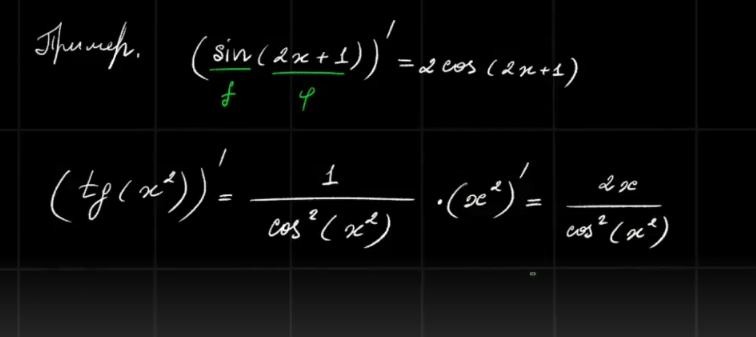 Пример. (sin(2x+1))' = 2cos(2x+1)
f φ
(tg(x²))' = 1/cos²(x²) · (x²)' = 2x/cos²(x²)